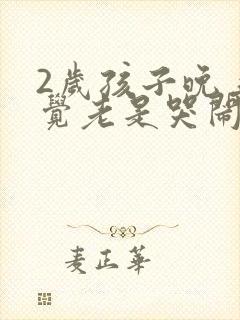 2歲孩子晚
覺老是哭鬧
麦正華